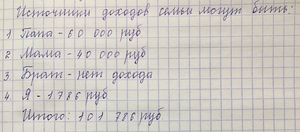 Источники доходов семьи могут быть:
1 Папа - 60 000 руб
2 Мама - 40 000 руб
3 Брат - нет дохода
4 Я - 1786 руб
Итого: 101 786 руб